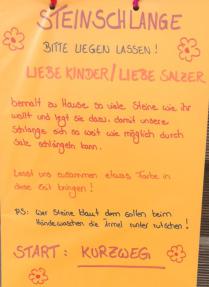 STEINSCHLANGE
BITTE LIEGEN LASSEN!
LIEBE KINDER/LIEBE SALZER
bemalt zu Hause so viele Steine wie ihr
wollt und legt sie dazu, damit unsere
Schlange sich so weit wie möglich durch
Salz schlängeln kann.
Lasst uns zusammen etwas Farbe in
diese Zeit bringen!
PS: Wer Steine klaut dem sollen beim
Händewaschen die Ärmel runter rutschen!
START: KURZWEG